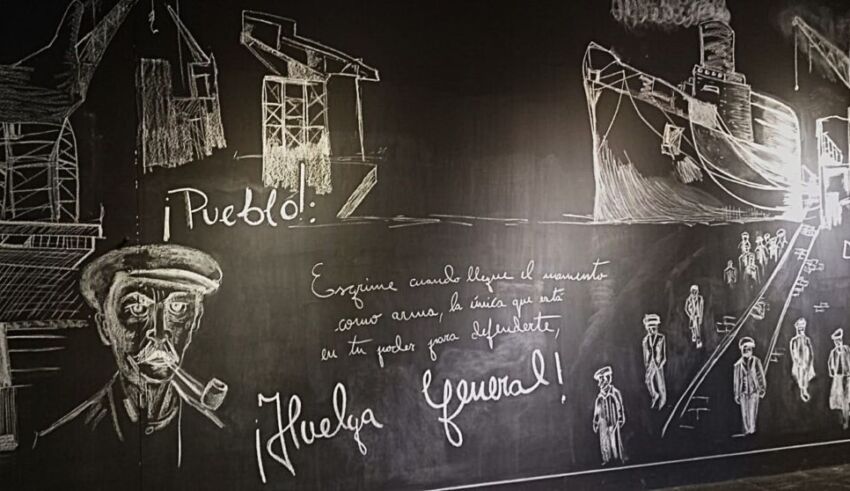 ¡Pueblo!:
Esgrime cuando llegue el momento
como arma, la única que está
en tu poder para defenderte,
¡Huelga General!